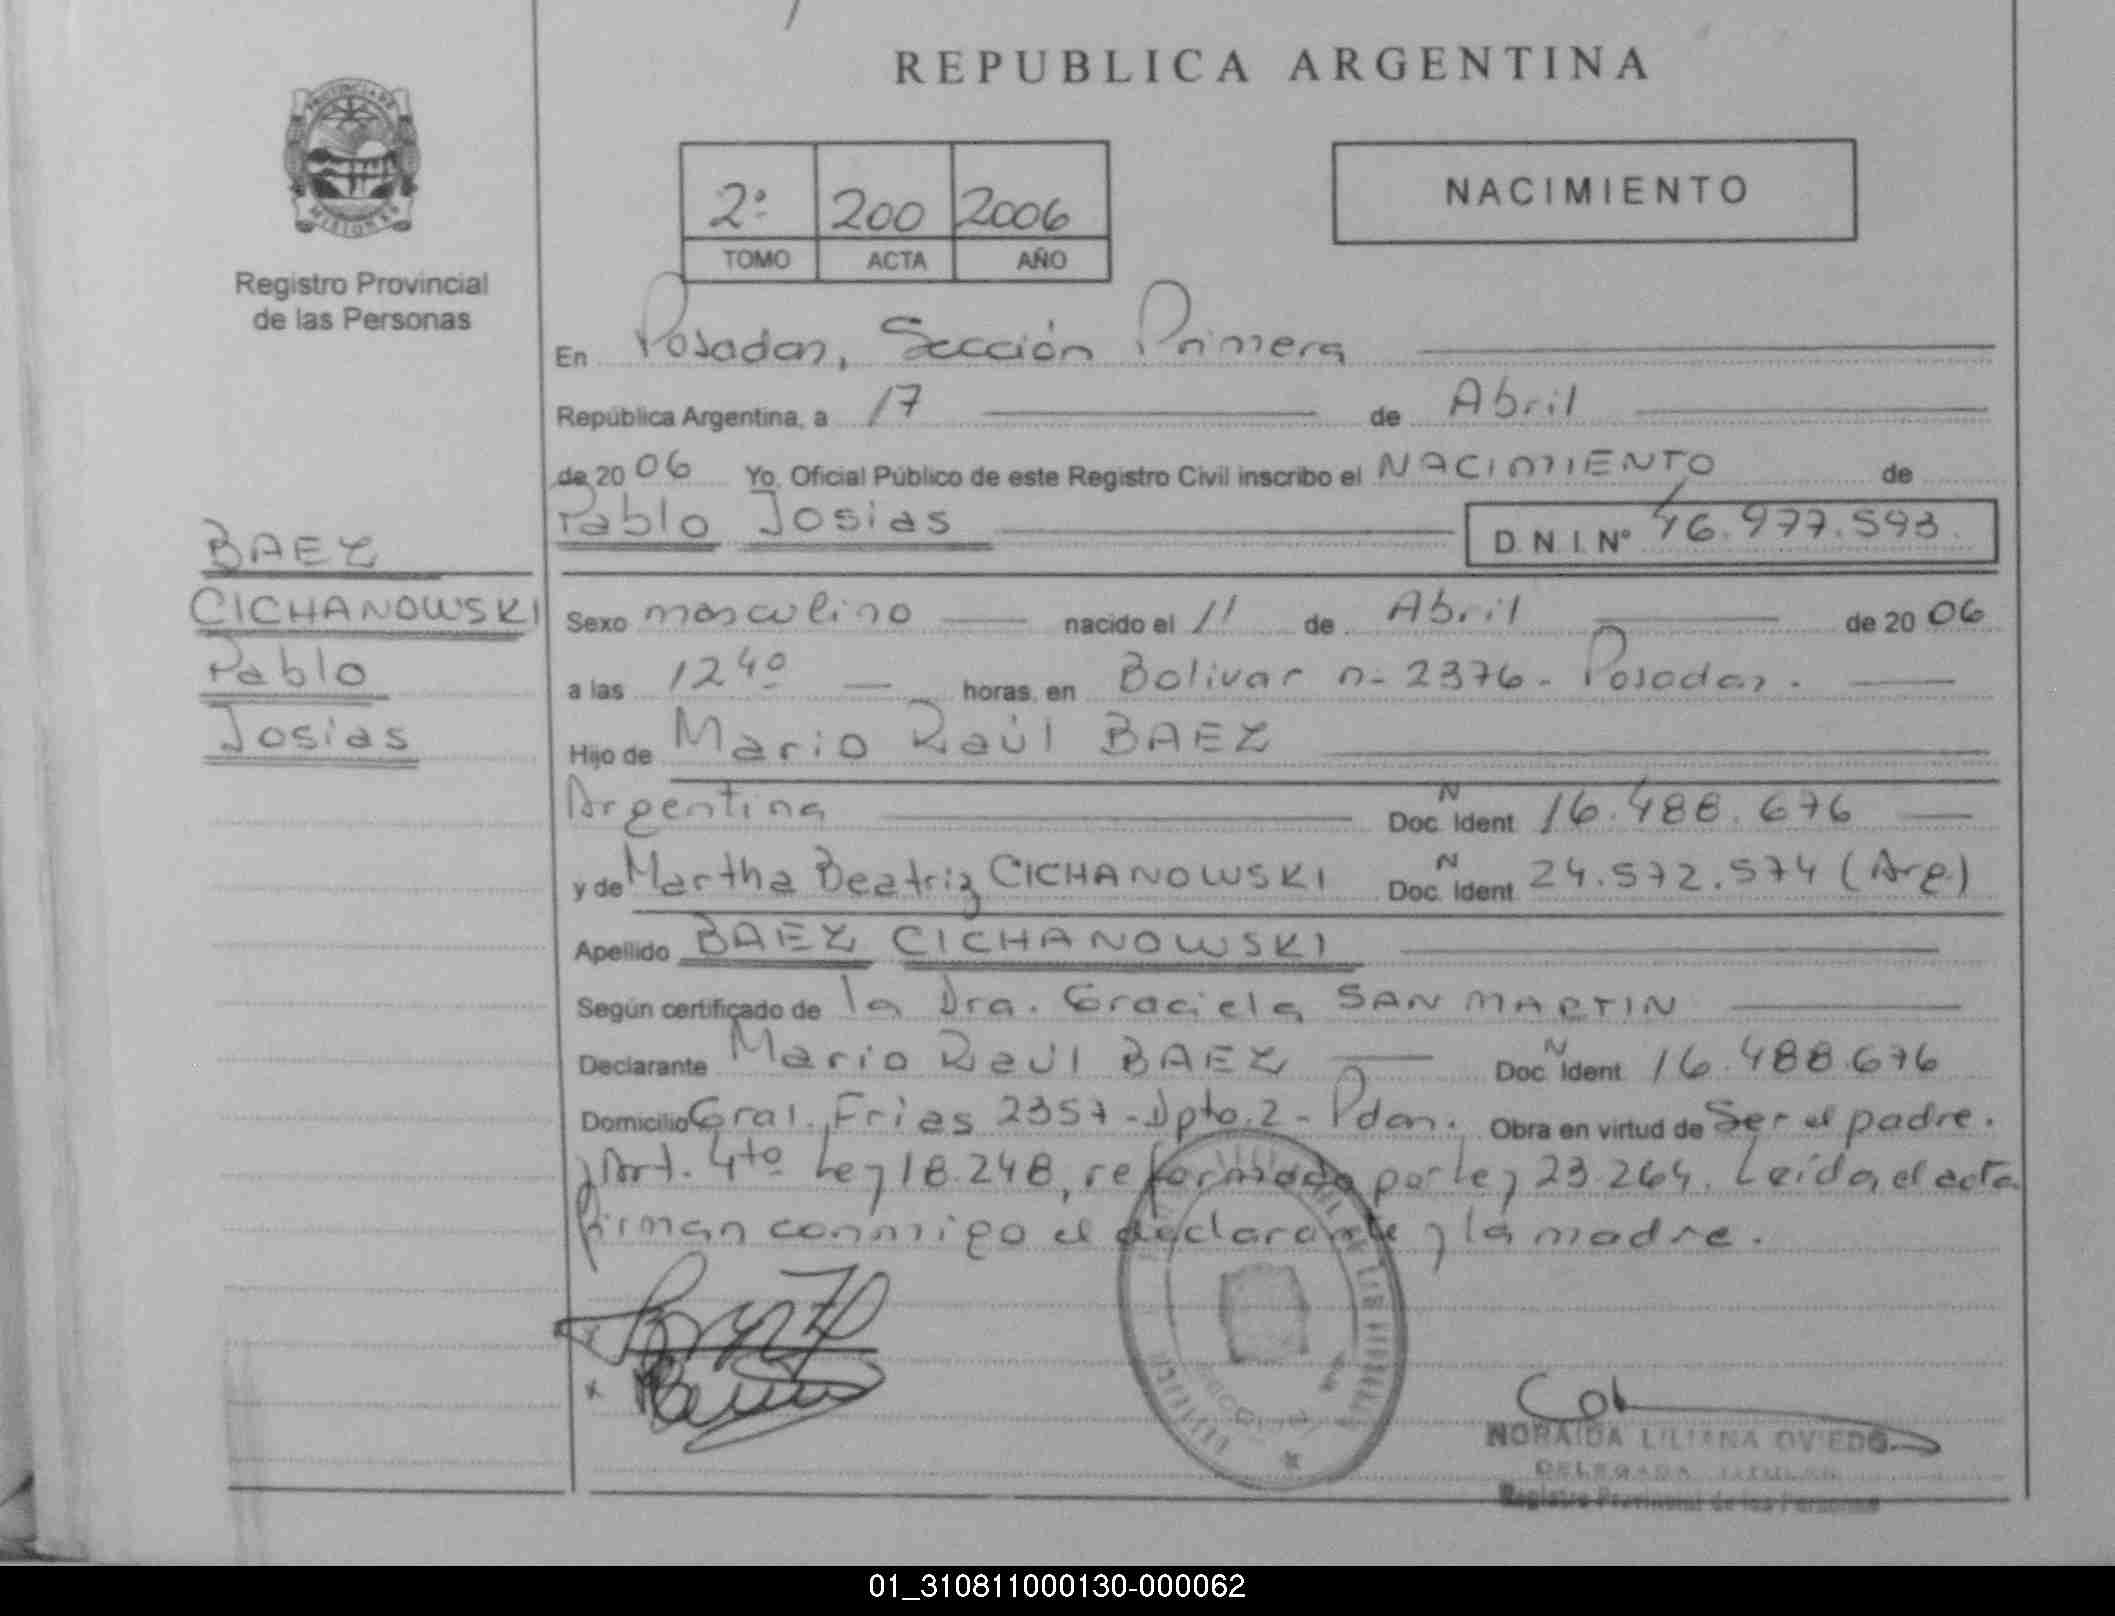 REPUBLICA ARGENTINA
PROVINCIA DE
MISIONES
Registro Provincial
de las Personas
2º 200 2006
TOMO ACTA AÑO
NACIMIENTO
En Posadas, Sección Primera
República Argentina, a 17 de Abril
de 20 06 Yo, Oficial Público de este Registro Civil inscribo el NACIMIENTO de
Pablo Josias D.N.I. Nº 46.977.593.
BAEZ
CICHANOWSKI
Pablo
Josias
Sexo masculino nacido el 11 de Abril de 20 06
a las 12 40 horas, en Bolivar n- 2376 - Posadas.
Hijo de Mario Raúl BAEZ
Argentina Doc. N Ident 16.488.676
y de Martha Beatriz CICHANOWSKI Doc. N Ident 24.572.574 (Arg)
Apellido BAEZ CICHANOWSKI
Según certificado de la Dra. Graciela SAN MARTIN
Declarante Mario Raúl BAEZ Doc. N Ident 16.488.676
Domicilio Gral. Frias 2357 - Dpto. 2 - Pdas. Obra en virtud de Ser el padre.
y Art. 4to Ley 18.248, reformado por ley 23.264. Leída el acta
firman conmigo el declarante y la madre.
NORAIDA LILIANA OVIEDO
DELEGADA TITULAR
Registro Provincial de las Personas
01_310811000130-000062